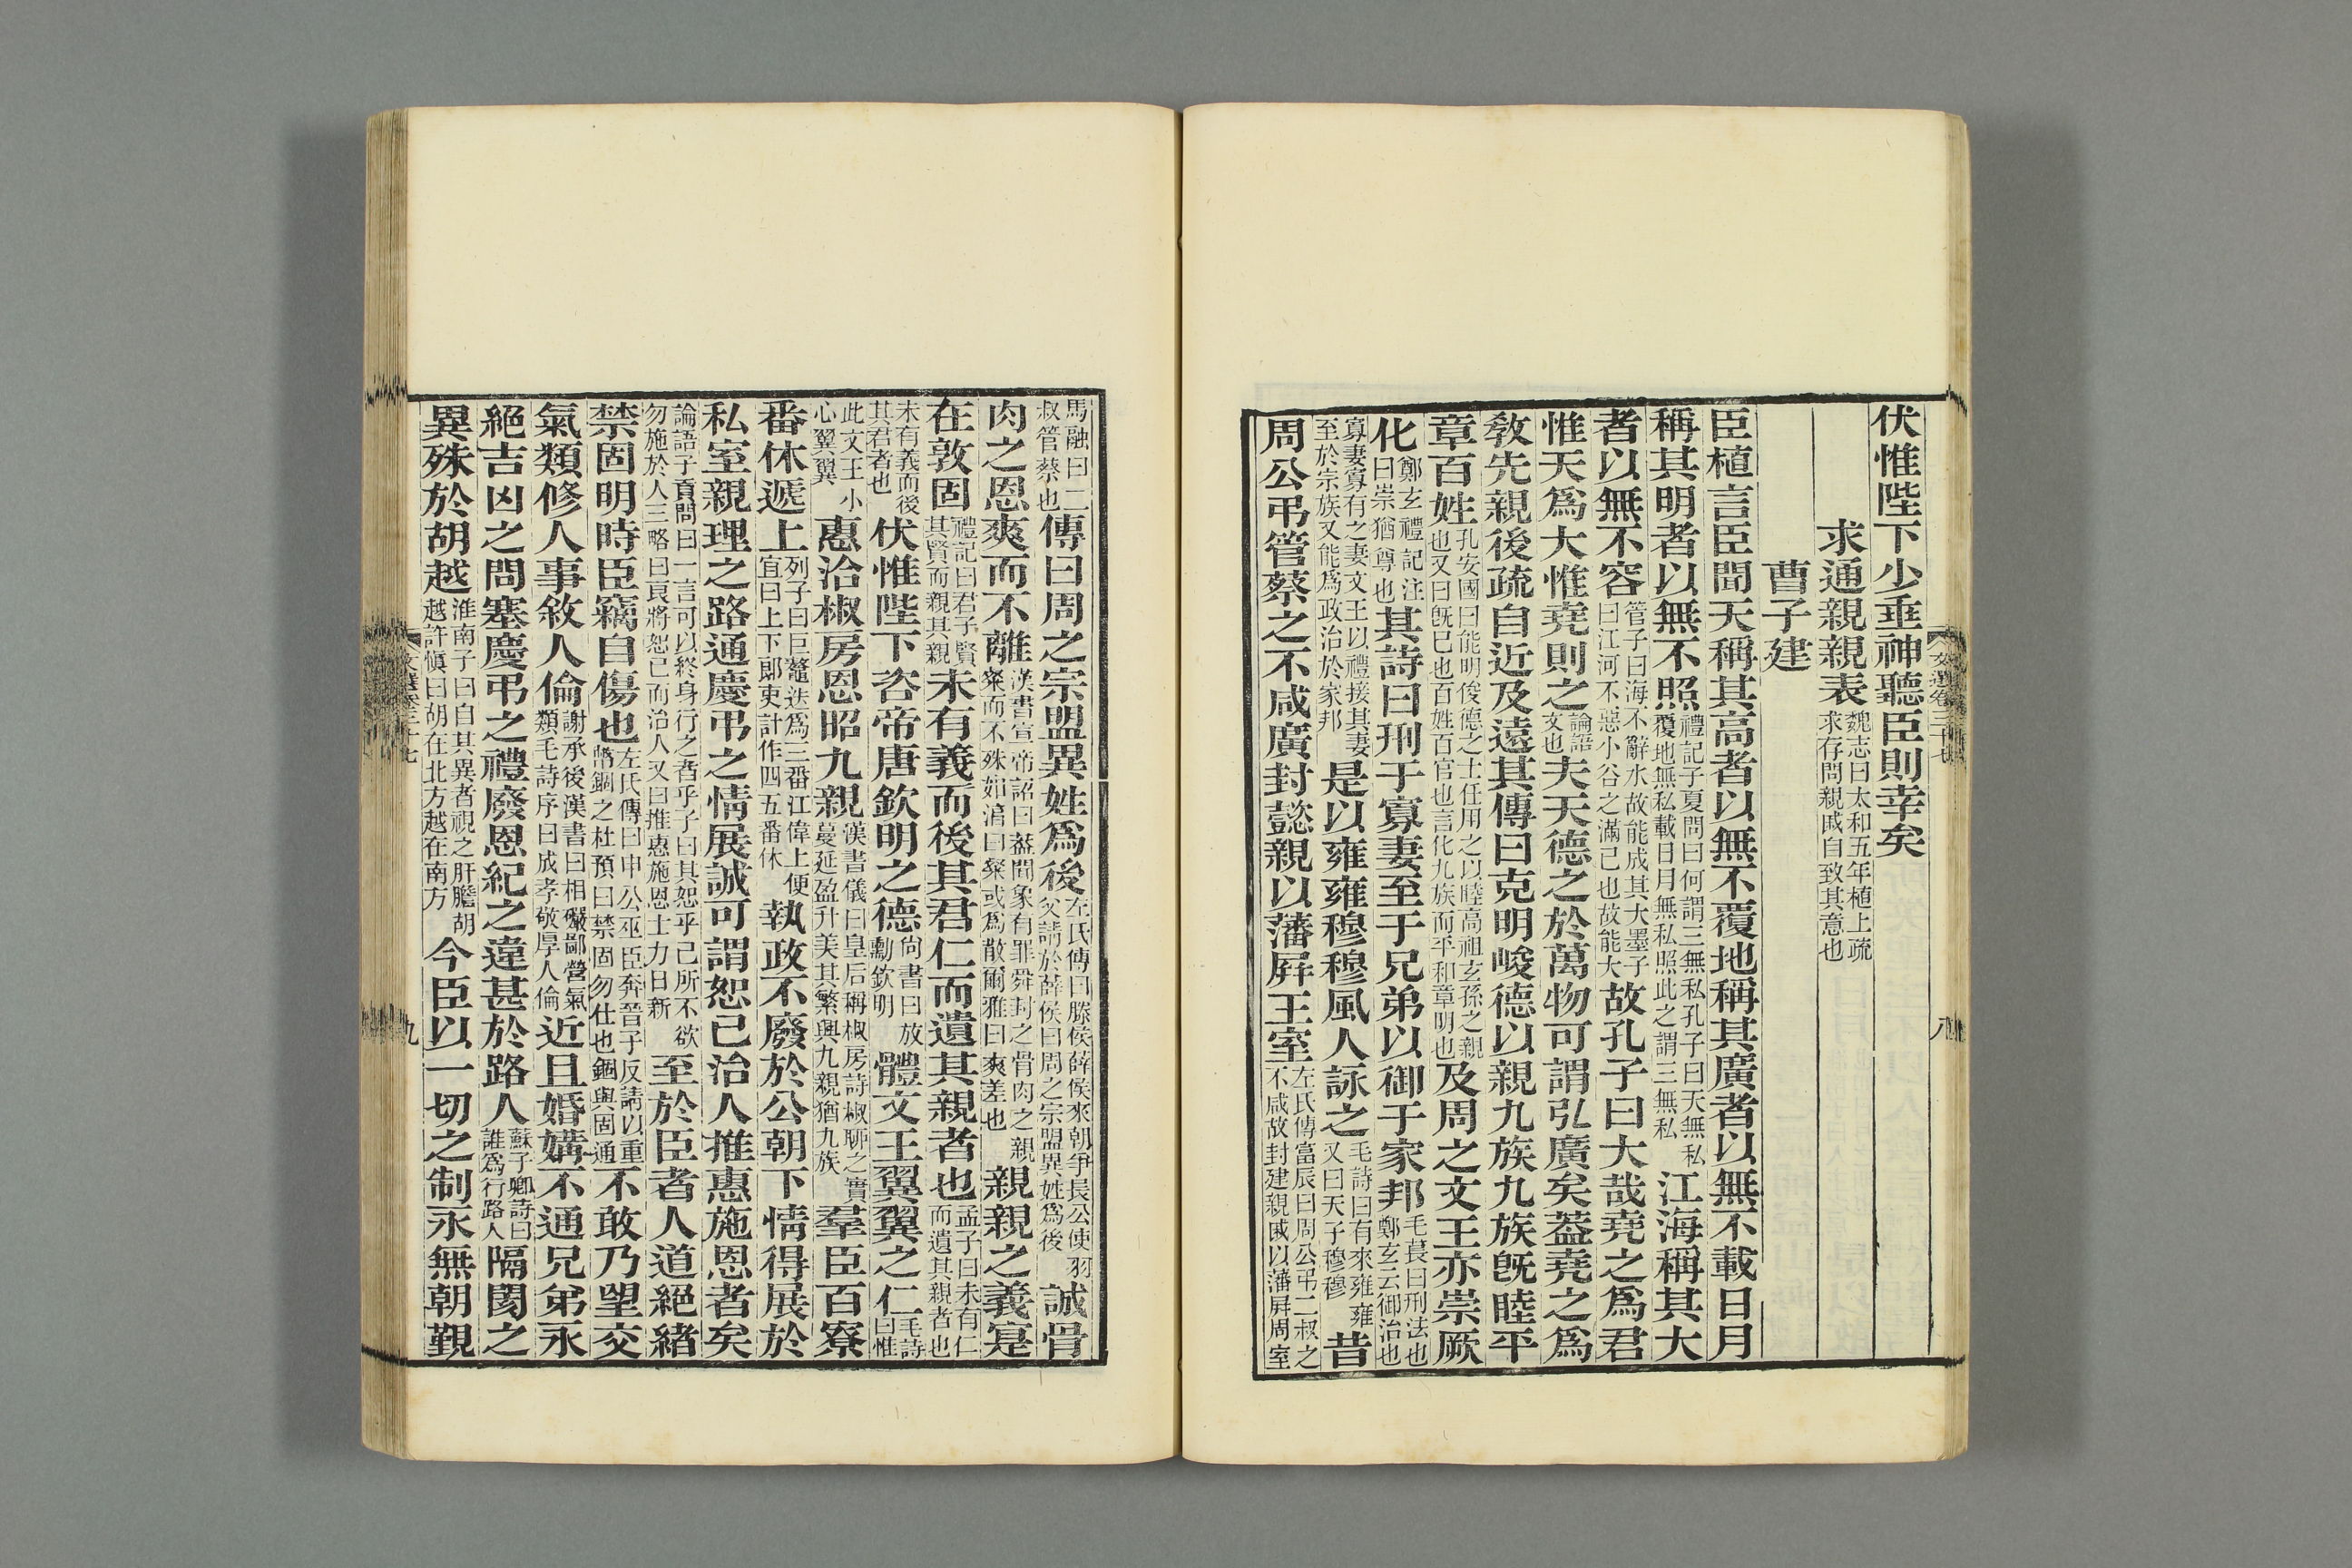 伏惟陛下少垂神聽臣則幸矣
求通親親表魏志曰太和五年植上疏求存問親戚自致其意也
曹子建
臣植言臣聞天稱其高者以無不覆地稱其廣者以無不載日月
稱其明者以無不照禮記子夏問曰何謂三無私孔子曰天無私覆地無私載日月無私照此之謂三無私江海稱其大
者以無不容管子曰海不辭水故能成其大墨子曰江河不惡小谷之滿已也故能大故孔子曰大哉堯之爲君
惟天爲大惟堯則之論語文也夫天德之於萬物可謂弘廣矣葢堯之爲
敎先親後疏自近及遠其傳曰克明峻德以親九族九族旣睦平
章百姓孔安國曰能明俊德之士任用之以睦高祖玄孫之親也又曰旣已也百姓百官也言化九族而平和章明也及周之文王亦崇厥
化鄭玄禮記注曰崇猶尊也其詩曰刑于寡妻至于兄弟以御于家邦毛萇曰刑法也鄭玄云御治也
寡妻寡有之妻文王以禮接其妻至於宗族又能爲政治於家邦是以雍雍穆穆風人詠之毛詩曰有來雍雍又曰天子穆穆昔
周公弔管蔡之不咸廣封懿親以藩屛王室左氏傳富辰曰周公弔二叔之不咸故封建親戚以藩屛周室
文選卷三十七 八
馬融曰二叔管蔡也傳曰周之宗盟異姓爲後左氏傳曰滕侯薛侯來朝爭長公使羽父請於薛侯曰周之宗盟異姓爲後誠骨
肉之恩爽而不離漢書宣帝詔曰葢聞象有罪舜封之骨肉之親粲而不殊如淳曰粲或爲散爾雅曰爽差也親親之義寔
在敦固禮記曰君子賢其賢而親其親未有義而後其君仁而遺其親者也孟子曰未有仁而遺其親者也
未有義而後其君者也伏惟陛下咨帝唐欽明之德尙書曰放勳欽明體文王翼翼之仁毛詩曰惟
此文王小心翼翼惠洽椒房恩昭九親漢書儀曰皇后稱椒房詩椒聊之實蔓延盈升美其繁興九親猶九族羣臣百寮
番休遞上列子曰巨鼇迭爲三番江偉上便宜曰上下郞吏計作四五番休執政不廢於公朝下情得展於
私室親理之路通慶弔之情展誠可謂恕己治人推惠施恩者矣
論語子貢問曰一言可以終身行之者乎子曰其恕乎己所不欲勿施於人三略曰良將恕己而治人又曰推惠施恩士力日新至於臣者人道絕緒
禁固明時臣竊自傷也左氏傳曰申公巫臣奔晉子反請以重幣錮之杜預曰禁固勿仕也錮與固通不敢乃望交
氣類修人事敘人倫謝承後漢書曰相礹鄙營氣類毛詩序曰成孝敬厚人倫近且婚媾不通兄弟永
絕吉凶之問塞慶弔之禮廢恩紀之違甚於路人蘇子卿詩曰誰爲行路人隔閡之
異殊於胡越淮南子曰自其異者視之肝膽胡越許愼曰胡在北方越在南方今臣以一切之制永無朝覲
文選卷三十七 九